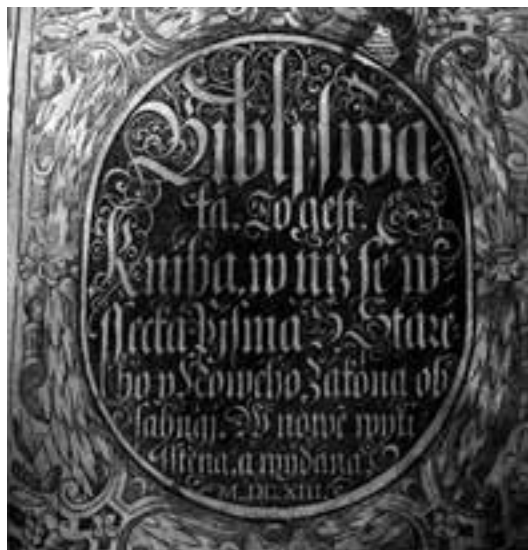 Biblj swa
ta. To gest:
Kniha, w njž se w
ssecka Pjsma S. Staré
ho y Nowého Zákona ob
sahugj. W nowě wyti
sstěna, a wydána.
M.DC.XIII.